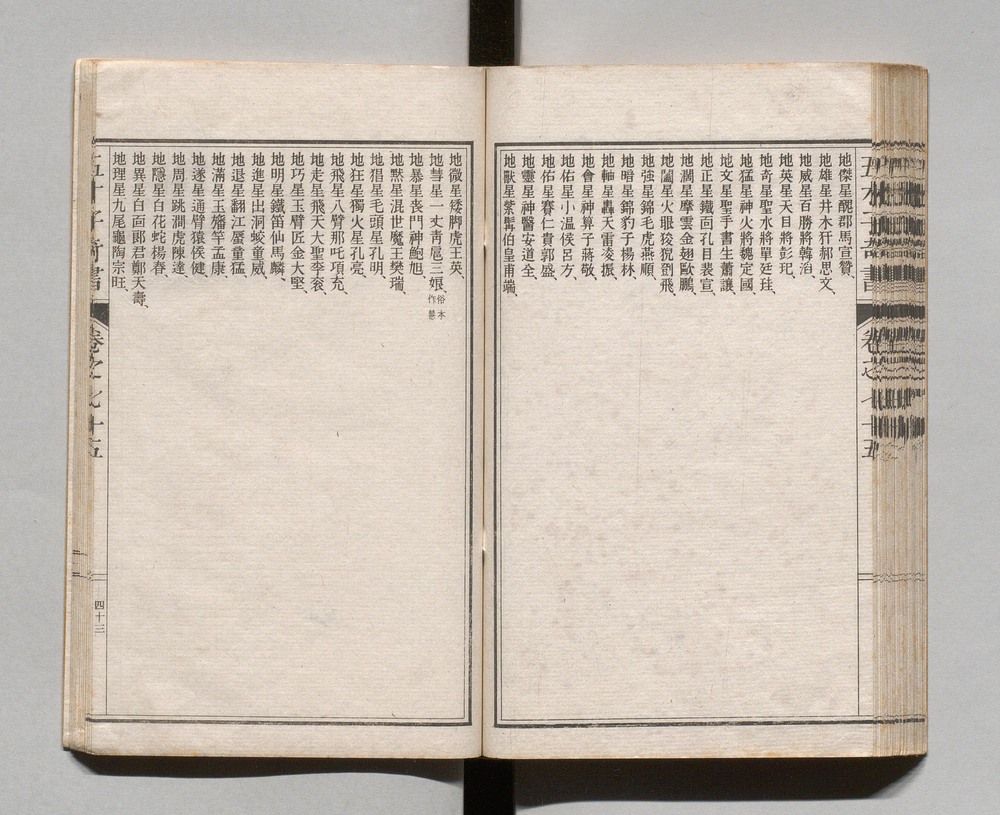 地傑星醜郡馬宣贊、
地雄星井木犴郝思文、
地威星百勝將韓滔、
地英星天目將彭玘、
地奇星聖水將單廷珪、
地猛星神火將魏定國、
地文星聖手書生蕭讓、
地正星鐵面孔目裴宣、
地濶星摩雲金翅歐鵬、
地闔星火眼狻猊鄧飛、
地強星錦毛虎燕順、
地暗星錦豹子楊林、
地軸星轟天雷凌振、
地會星神算子蔣敬、
地佐星小溫侯呂方、
地佑星賽仁貴郭盛、
地靈星神醫安道全、
地獸星紫髯伯皇甫端、
地微星矮脚虎王英、
地彗星一丈靑扈三娘、俗本作慧
地暴星喪門神鮑旭、
地默星混世魔王樊瑞、
地猖星毛頭星孔明、
地狂星獨火星孔亮、
地飛星八臂那吒項充、
地走星飛天大聖李袞、
地巧星玉臂匠金大堅、
地明星鐵笛仙馬麟、
地進星出洞蛟童威、
地退星翻江蜃童猛、
地滿星玉旛竿孟康、
地遂星通臂猿侯健、
地周星跳澗虎陳達、
地隱星白花蛇楊春、
地異星白面郞君鄭天壽、
地理星九尾龜陶宗旺、
五才子奇書
卷之七十五
四十三